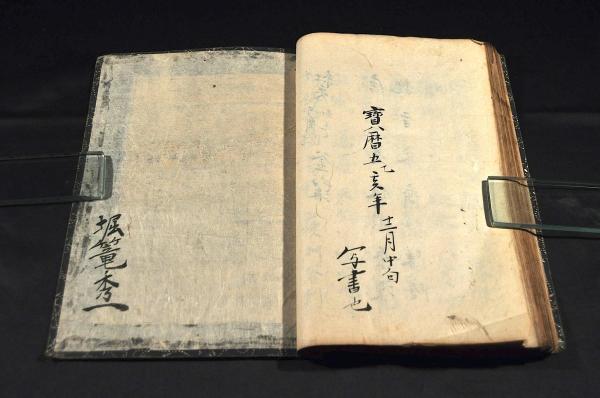 寶暦五乙亥年十二月中旬
写書也
堀篭秀一